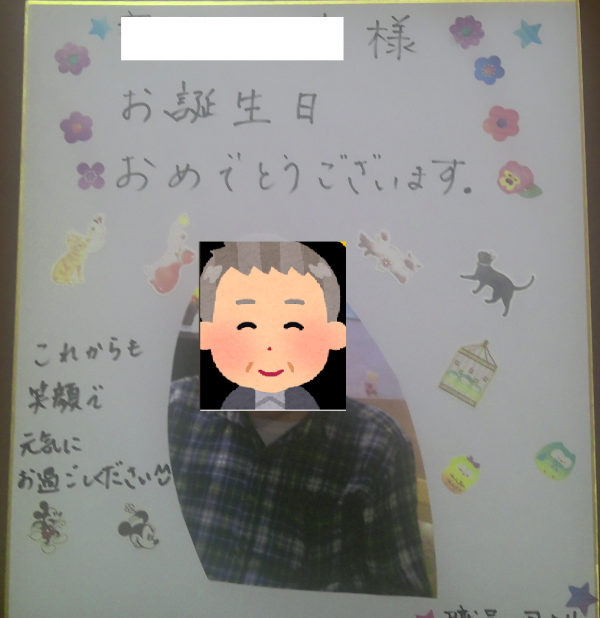 様
お誕生日
おめでとうございます。
これからも
笑顔で
元気に
お過ごしください